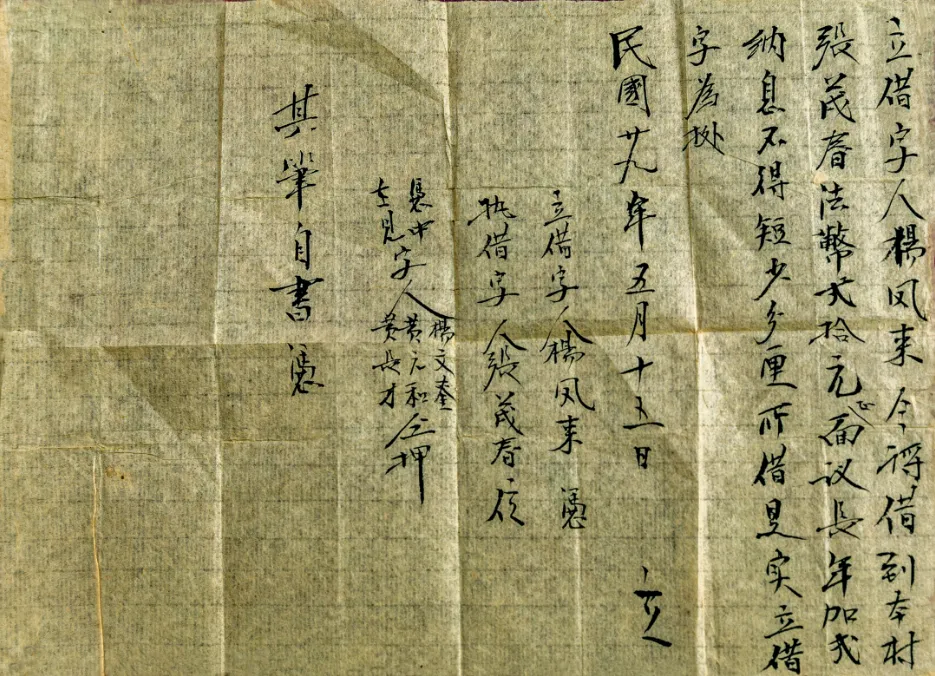 立借字人楊凤来今將借到本村
張茂春法幣弍拾元正面议長年加弍
纳息不得短少分厘所借是实立借
字為拠
民國廿九年五月十五日 立
立借字人楊凤来 憑
执借字人張茂春
憑中
在見
字人
楊文奎
黄元和
黄长才
仝押
其筆自書憑